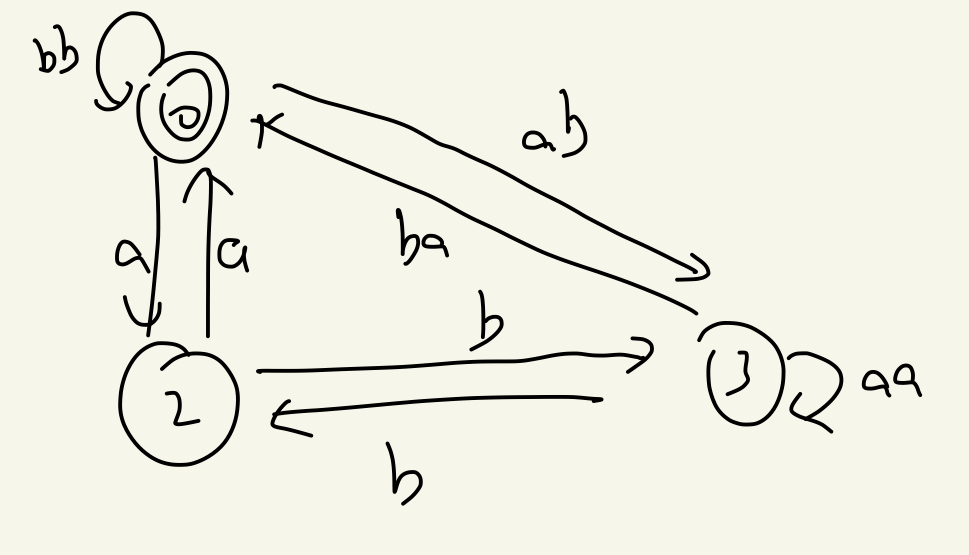 bb
0
ab
a
a
ba
b
2
3
aa
b